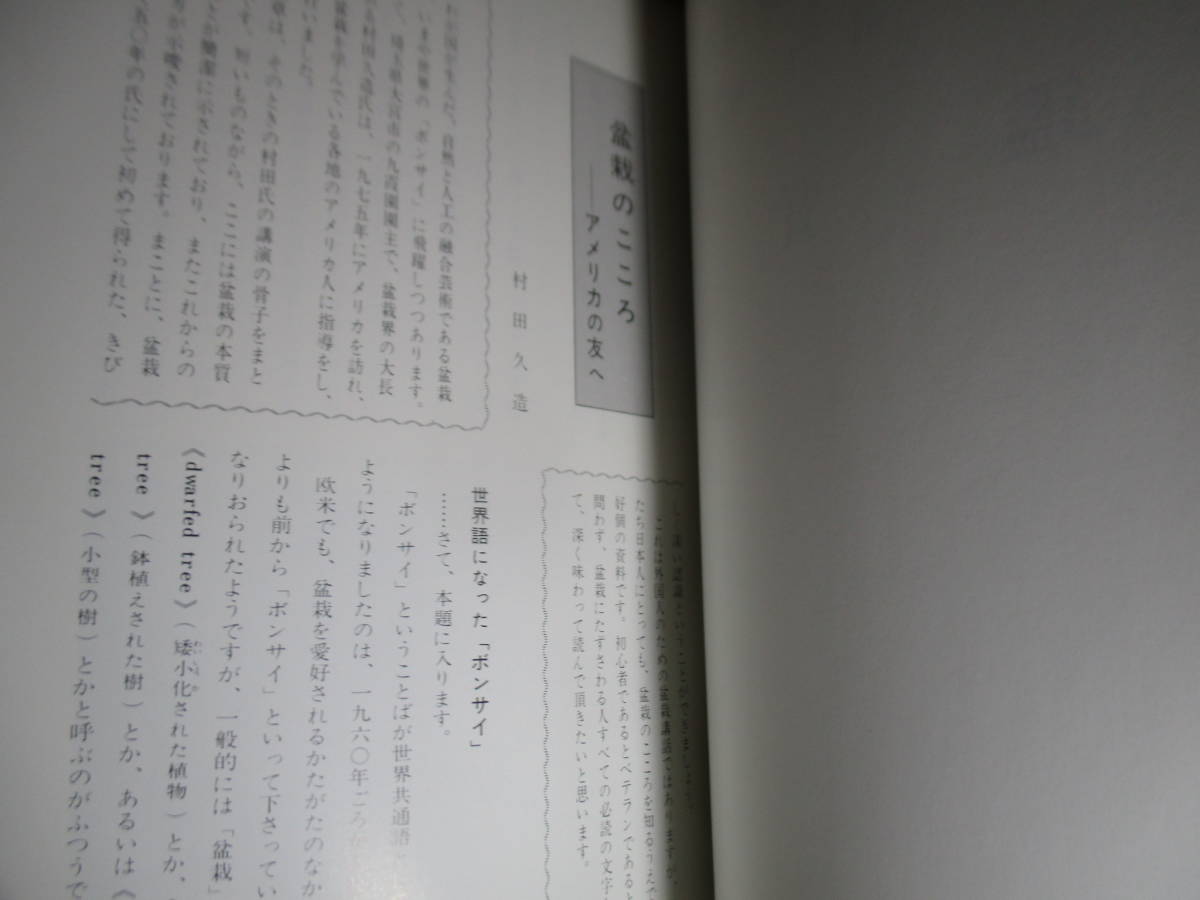 盆栽のこころ
――アメリカの友へ
村田久造
自然と人工の融合芸術である盆栽
いまや世界の「ボンサイ」に飛躍しつつあります。
埼玉県大宮市の九霞園園主で、盆栽界の大長
村田久造氏は、一九七五年にアメリカを訪れ、
盆栽を学んでいる各地のアメリカ人に指導をし、
いました。
は、そのときの村田氏の講演の骨子をまと
です。短いものながら、ここには盆栽の本質
が簡潔に示されており、またこれからの
が示唆されております。まことに、盆栽
五〇年の氏にして初めて得られた、きび
深い認識ということができましょう。
これは外国人のための盆栽講話ではありますが、
たち日本人にとっても、盆栽のこころを知るうえで
好個の資料です。初心者であるとベテランであると
問わず、盆栽にたずさわる人すべての必読の文字
て、深く味わって読んで頂きたいと思います。
世界語になった「ボンサイ」
……さて、本題に入ります。
「ボンサイ」ということばが世界共通語
ようになりましたのは、一九六〇年ごろ
欧米でも、盆栽を愛好されるかたがたのなか
よりも前から「ボンサイ」といって下さってい
なりおられたようですが、一般的には「盆栽」
《dwarfed tree》(矮小化された植物)とか、
tree》(鉢植えされた樹)とか、あるいは《
tree》(小型の樹)とかと呼ぶのがふつうで